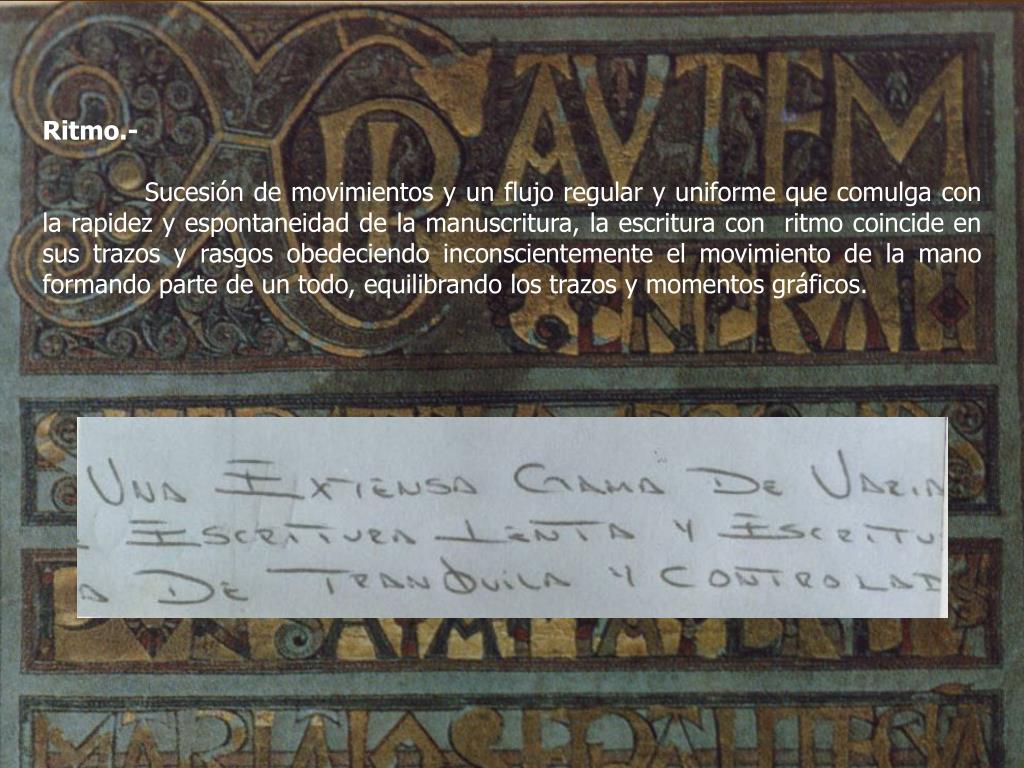 Ritmo.-
Sucesión de movimientos y un flujo regular y uniforme que comulga con
la rapidez y espontaneidad de la manuscritura, la escritura con ritmo coincide en
sus trazos y rasgos obedeciendo inconscientemente el movimiento de la mano
formando parte de un todo, equilibrando los trazos y momentos gráficos.
AUTEM
GENERATIO
UNA EXTENSA GAMA DE VARIA
ESCRITURA LENTA Y ESCRITU
A DE TRANQUILA Y CONTROLAD